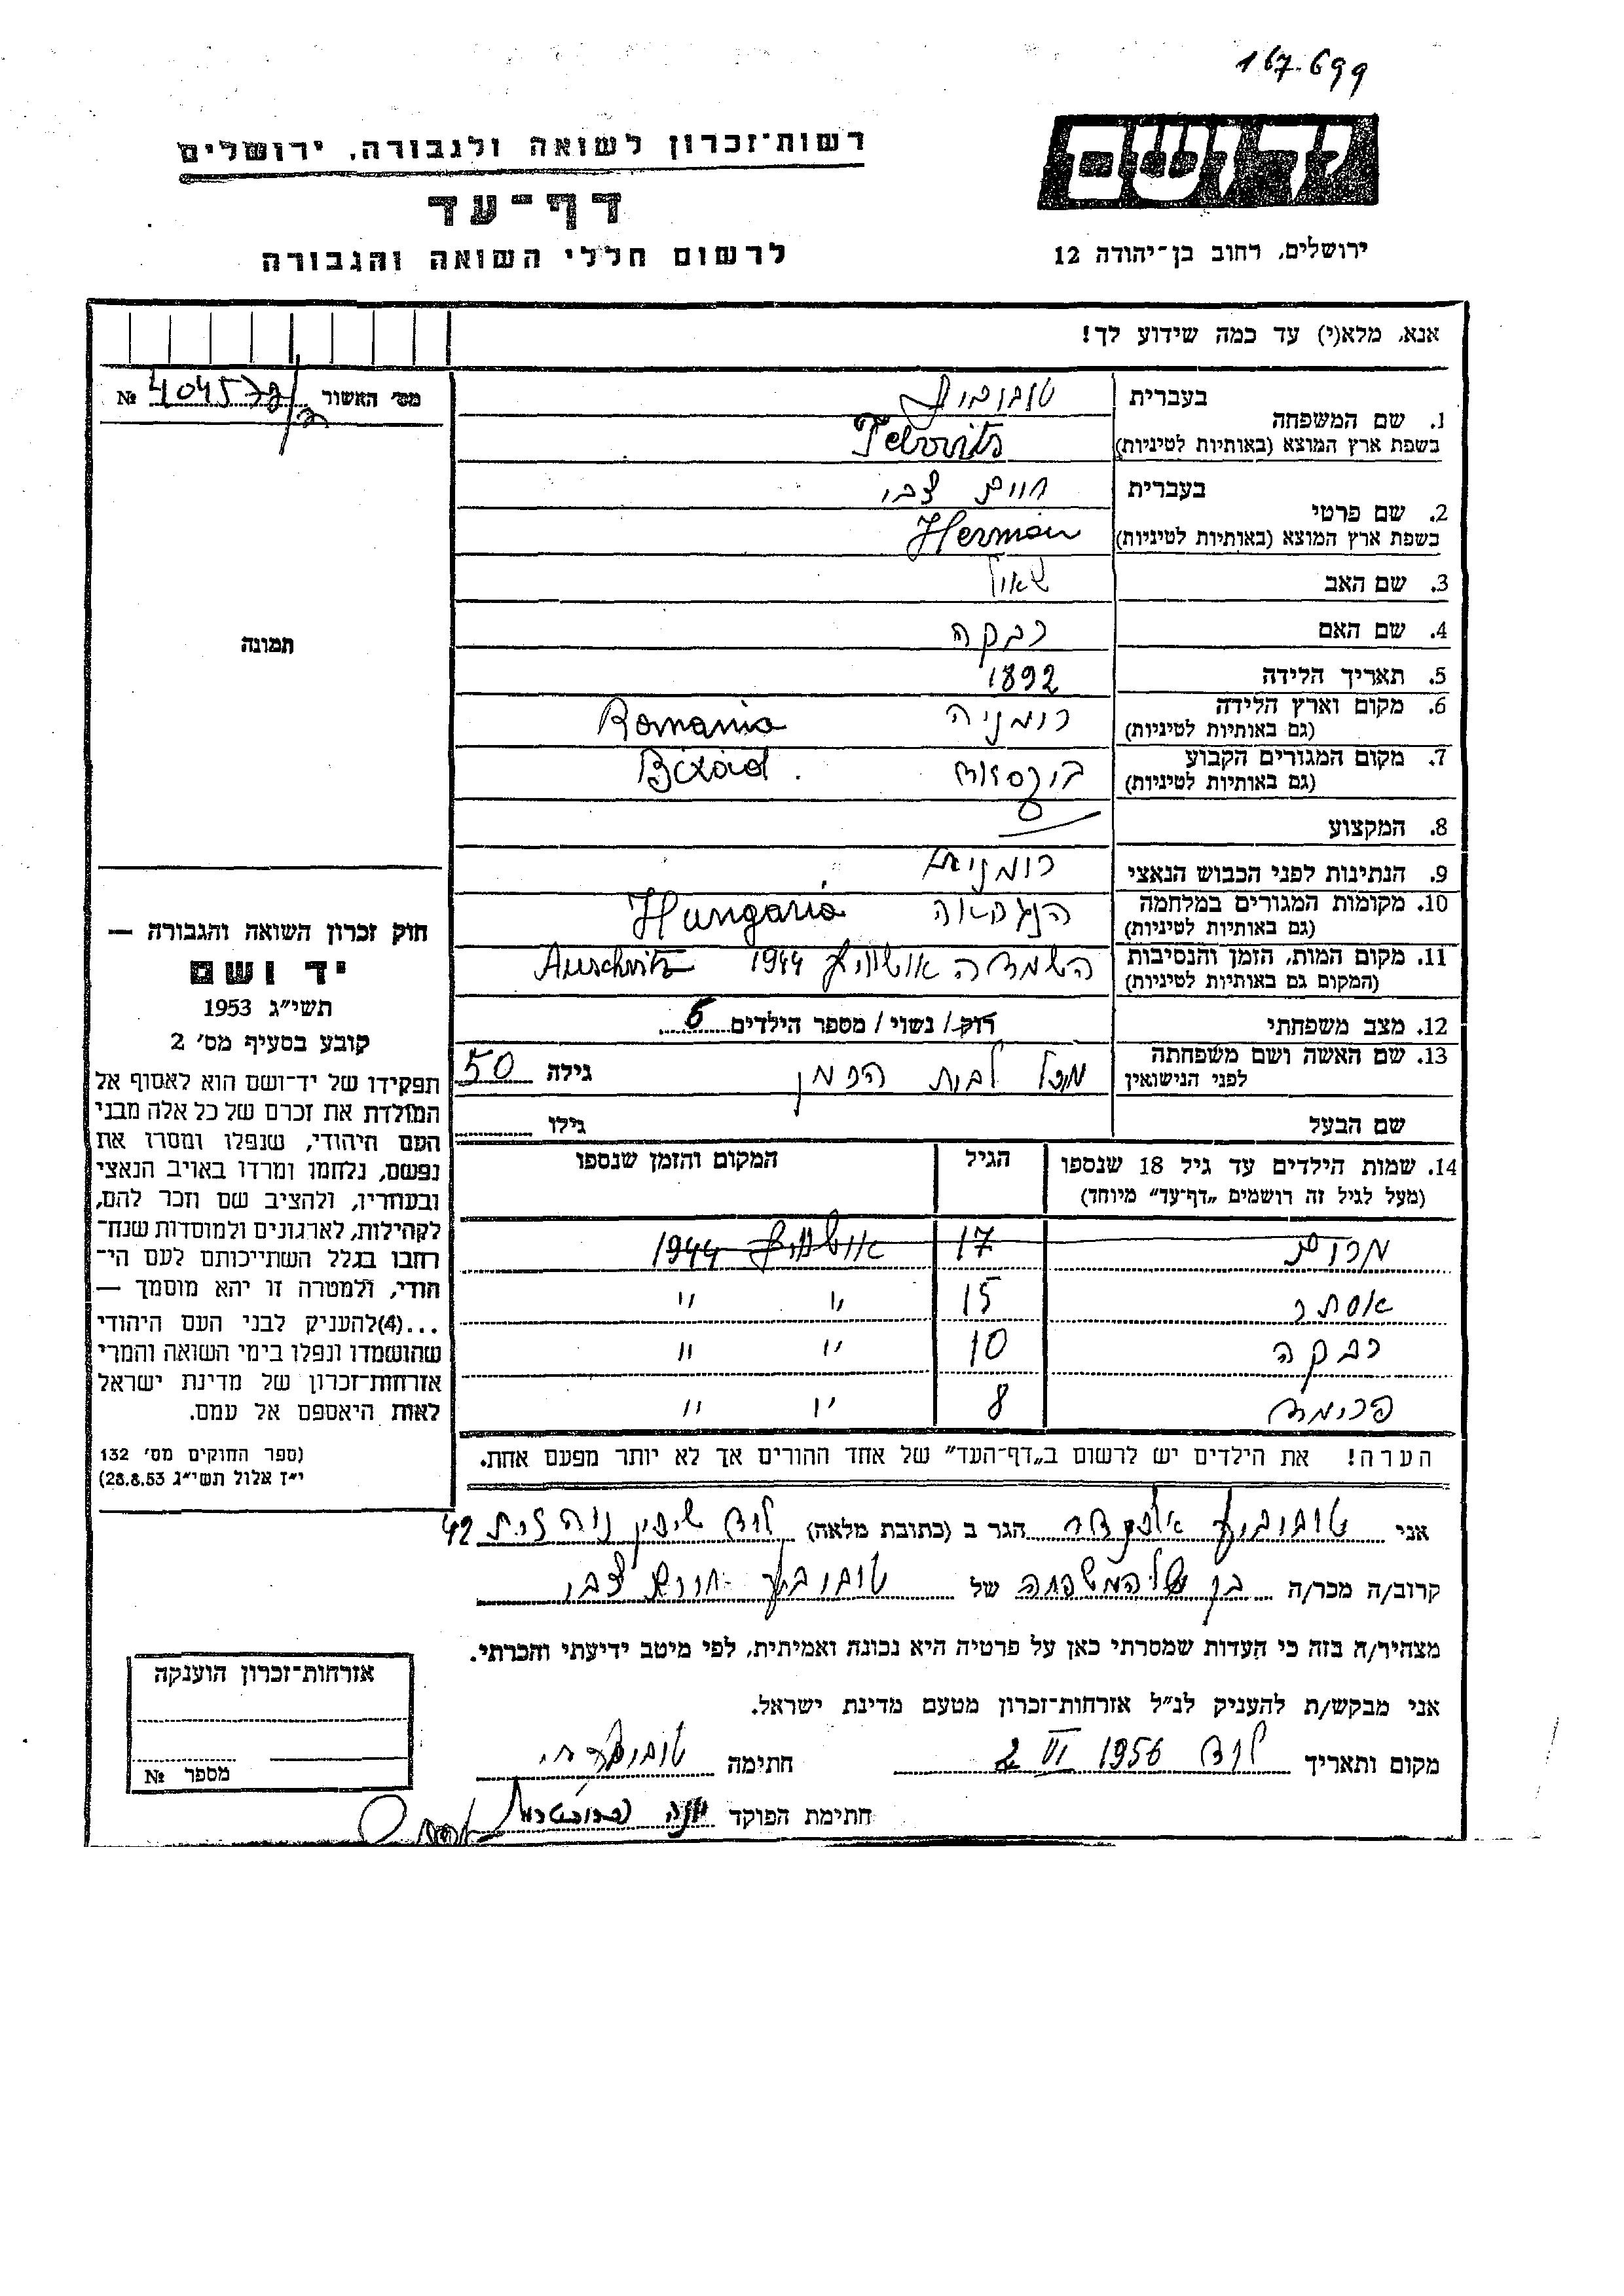 167.699
רשות־זכרון לשואה ולגבורה, ירושלים
דף־עד
לרשום חללי השואה והגבורה
ירושלים, רחוב בן־יהודה 12
אנא, מלא(י) עד כמה שידוע לך!
מס׳ האשור № 404572
1. שם המשפחה
בעברית טובוביץ
בשפת ארץ המוצא (באותיות לטיניות)
2. שם פרטי
בעברית חיים צבי
בשפת ארץ המוצא (באותיות לטיניות) Hermán
3. שם האב שאול
4. שם האם רבקה
5. תאריך הלידה 1892
6. מקום וארץ הלידה רומניה Romania
(גם באותיות לטיניות)
7. מקום המגורים הקבוע ביקסאד Bixád
(גם באותיות לטיניות)
8. המקצוע
9. הנתינות לפני הכבוש הנאצי רומנית
10. מקומות המגורים במלחמה הונגריה Hungaria
(גם באותיות לטיניות)
11. מקום המות, הזמן והנסיבות השמדה אושוויץ 1944 Auschwitz
(המקום גם באותיות לטיניות)
12. מצב משפחתי רוק / נשוי / מספר הילדים 6
13. שם האשה ושם משפחתה לבית גילה 50
לפני הנישואין
שם הבעל גילו
14. שמות הילדים עד גיל 18 שנספו הגיל המקום והזמן שנספו
(מעל לגיל זה רושמים „דף־עד״ מיוחד)
מרים 17 אושוויץ 1944
אסתר 15 ״ ״
רבקה 10 ״ ״
פרומה 8 ״ ״
הערה! את הילדים יש לרשום ב„דף־העד״ של אחד ההורים אך לא יותר מפעם אחת.
תמונה
חוק זכרון השואה והגבורה —
יד ושם
תשי״ג 1953
קובע בסעיף מס׳ 2
תפקידו של יד־ושם הוא לאסוף אל
המולדת את זכרם של כל אלה מבני
העם היהודי, שנפלו ומסרו את
נפשם, נלחמו ומרדו באויב הנאצי
ובעוזריו, ולהציב שם וזכר להם,
לקהילות, לארגונים ולמוסדות שנח־
רבו בגלל השתייכותם לעם הי־
הודי, ולמטרה זו יהא מוסמך —
...(4)להעניק לבני העם היהודי
שהושמדו ונפלו בימי השואה והמרי
אזרחות־זכרון של מדינת ישראל
לאות היאספם אל עמם.
(ספר החוקים מס׳ 132
י״ז אלול תשי״ג 28.8.53)
אני טובוביץ אלכסנדר הגר ב (כתובת מלאה) לוד שיכון נוה זית 42
קרוב/ה מכר/ה בן המשפחה של טובוביץ חיים צבי
מצהיר/ה בזה כי העדות שמסרתי כאן על פרטיה היא נכונה ואמיתית, לפי מיטב ידיעתי והכרתי.
אני מבקש/ת להעניק לנ״ל אזרחות־זכרון מטעם מדינת ישראל.
מקום ותאריך לוד 2 VI 1956 חתימה
חתימת הפוקד
אזרחות־זכרון הוענקה
מספר №